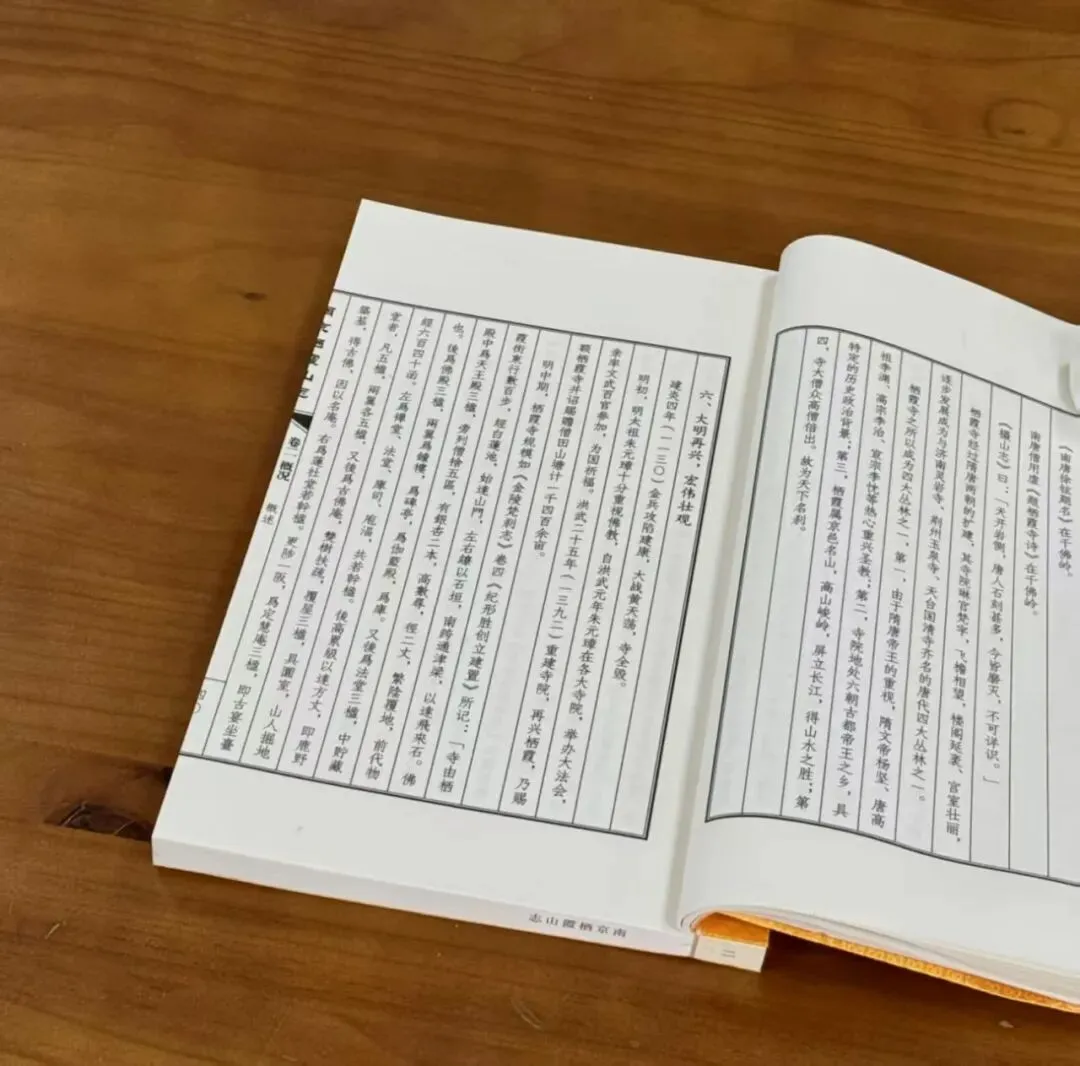 《南唐徐铉题名》在千佛岭。
南唐僧用虚《题栖霞寺诗》在千佛岭。
《摄山志》曰：「天开岩侧，唐人石刻甚多，今皆磨灭，不可详识。」
栖霞寺经过隋唐两朝的扩建，其寺院琳宫梵宇，飞檐相望，楼阁延袤，宫室壮丽，
逐步发展成为与济南灵岩寺、荆州玉泉寺、天台国清寺齐名的唐代四大丛林之一。
栖霞寺之所以成为四大丛林之一，第一，由于隋唐帝王的重视，隋文帝杨坚、唐高
祖李渊、高宗李治、宣宗李忱等热心重兴圣教；第二，寺院地处六朝古都帝王之乡，具
特定的历史政治背景；第三，栖霞属京邑名山，高山峻岭，屏立长江，得山水之胜；第
四，寺大僧众高僧倍出。故为天下名刹。
六、大明再兴，宏伟壮观
建炎四年（一一三〇）金兵攻陷建康，大战黄天荡，寺全毁。
明初，明太祖朱元璋十分重视佛教，自洪武元年朱元璋在各大寺院，举办大法会，
亲率文武百官参加，为国祈福。洪武二十五年（一三九二）重建寺院，再兴栖霞，乃赐
额栖霞寺并诏赐赡僧田山塘计一千四百余亩。
明中期，栖霞寺规模如《金陵梵刹志》卷四《纪形胜创立建置》所记：「寺由栖
霞街东行数百步，經白蓮池，始達山門，左右鐐以石垣，南跨通津梁，以達飛來石。佛
殿中爲天王殿三楹，旁列僧擔五區，有銀杏二本，高數尋，徑二丈，繁陰覆地，前代物
也。後爲佛殿三楹，兩翼爲鐘樓，爲碑亭，爲伽藍殿，爲庫。又後爲法堂三楹，中貯藏
經六百四十函。左爲禪堂、法堂、庫司、庖湢，共若幹楹。後高累級以達方丈，即鹿野
堂者，凡五楹，兩翼各五楹，又後爲古佛庵，樊樹扶疏，覆屋三楹，具圊室，山人掘地
築基，得古佛，因以名庵。右爲蓮社堂若幹楹。更陟一阪，爲定慧庵三楹，即古宴坐臺
南京栖霞山志
卷二 概况
概述
四〇
南京栖霞山志
二